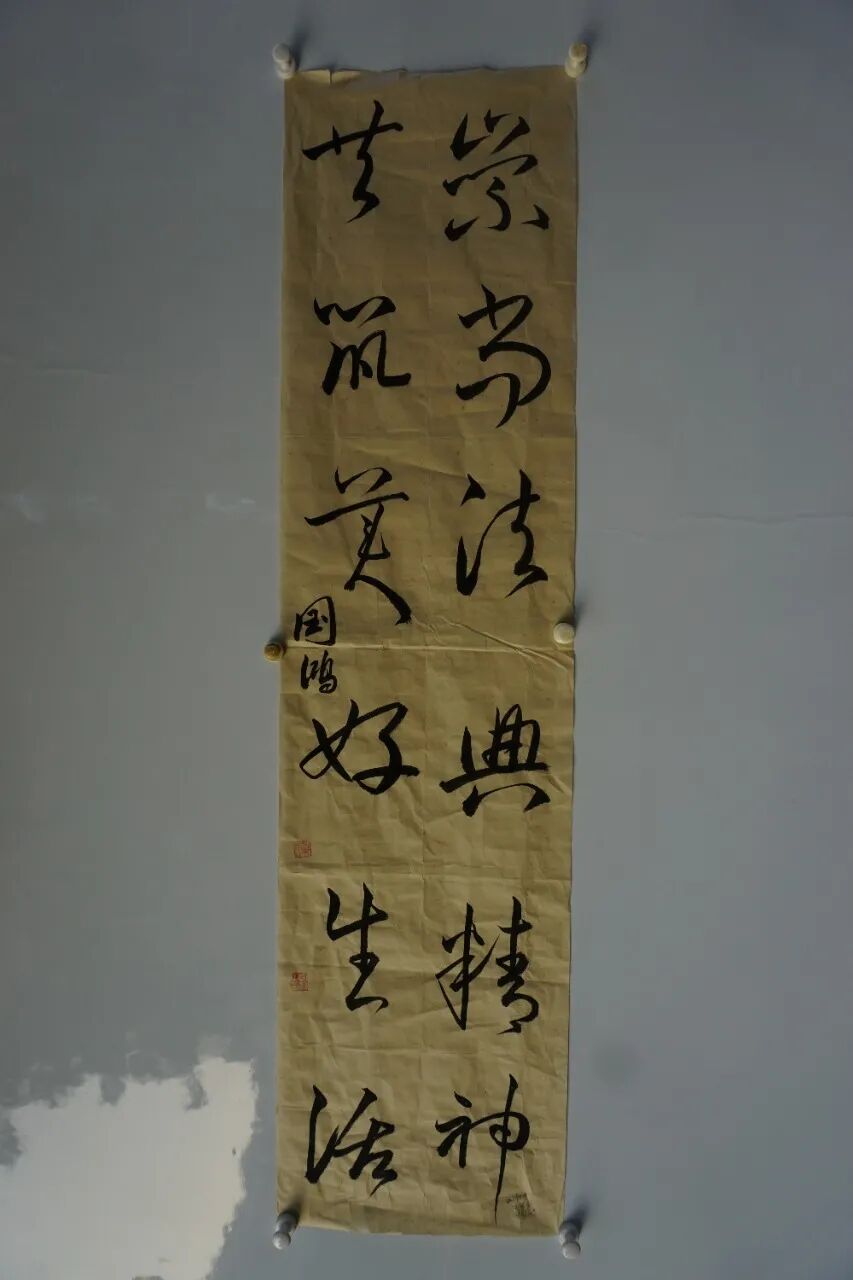 崇尚法典精神
共筑美好生活
国鸿